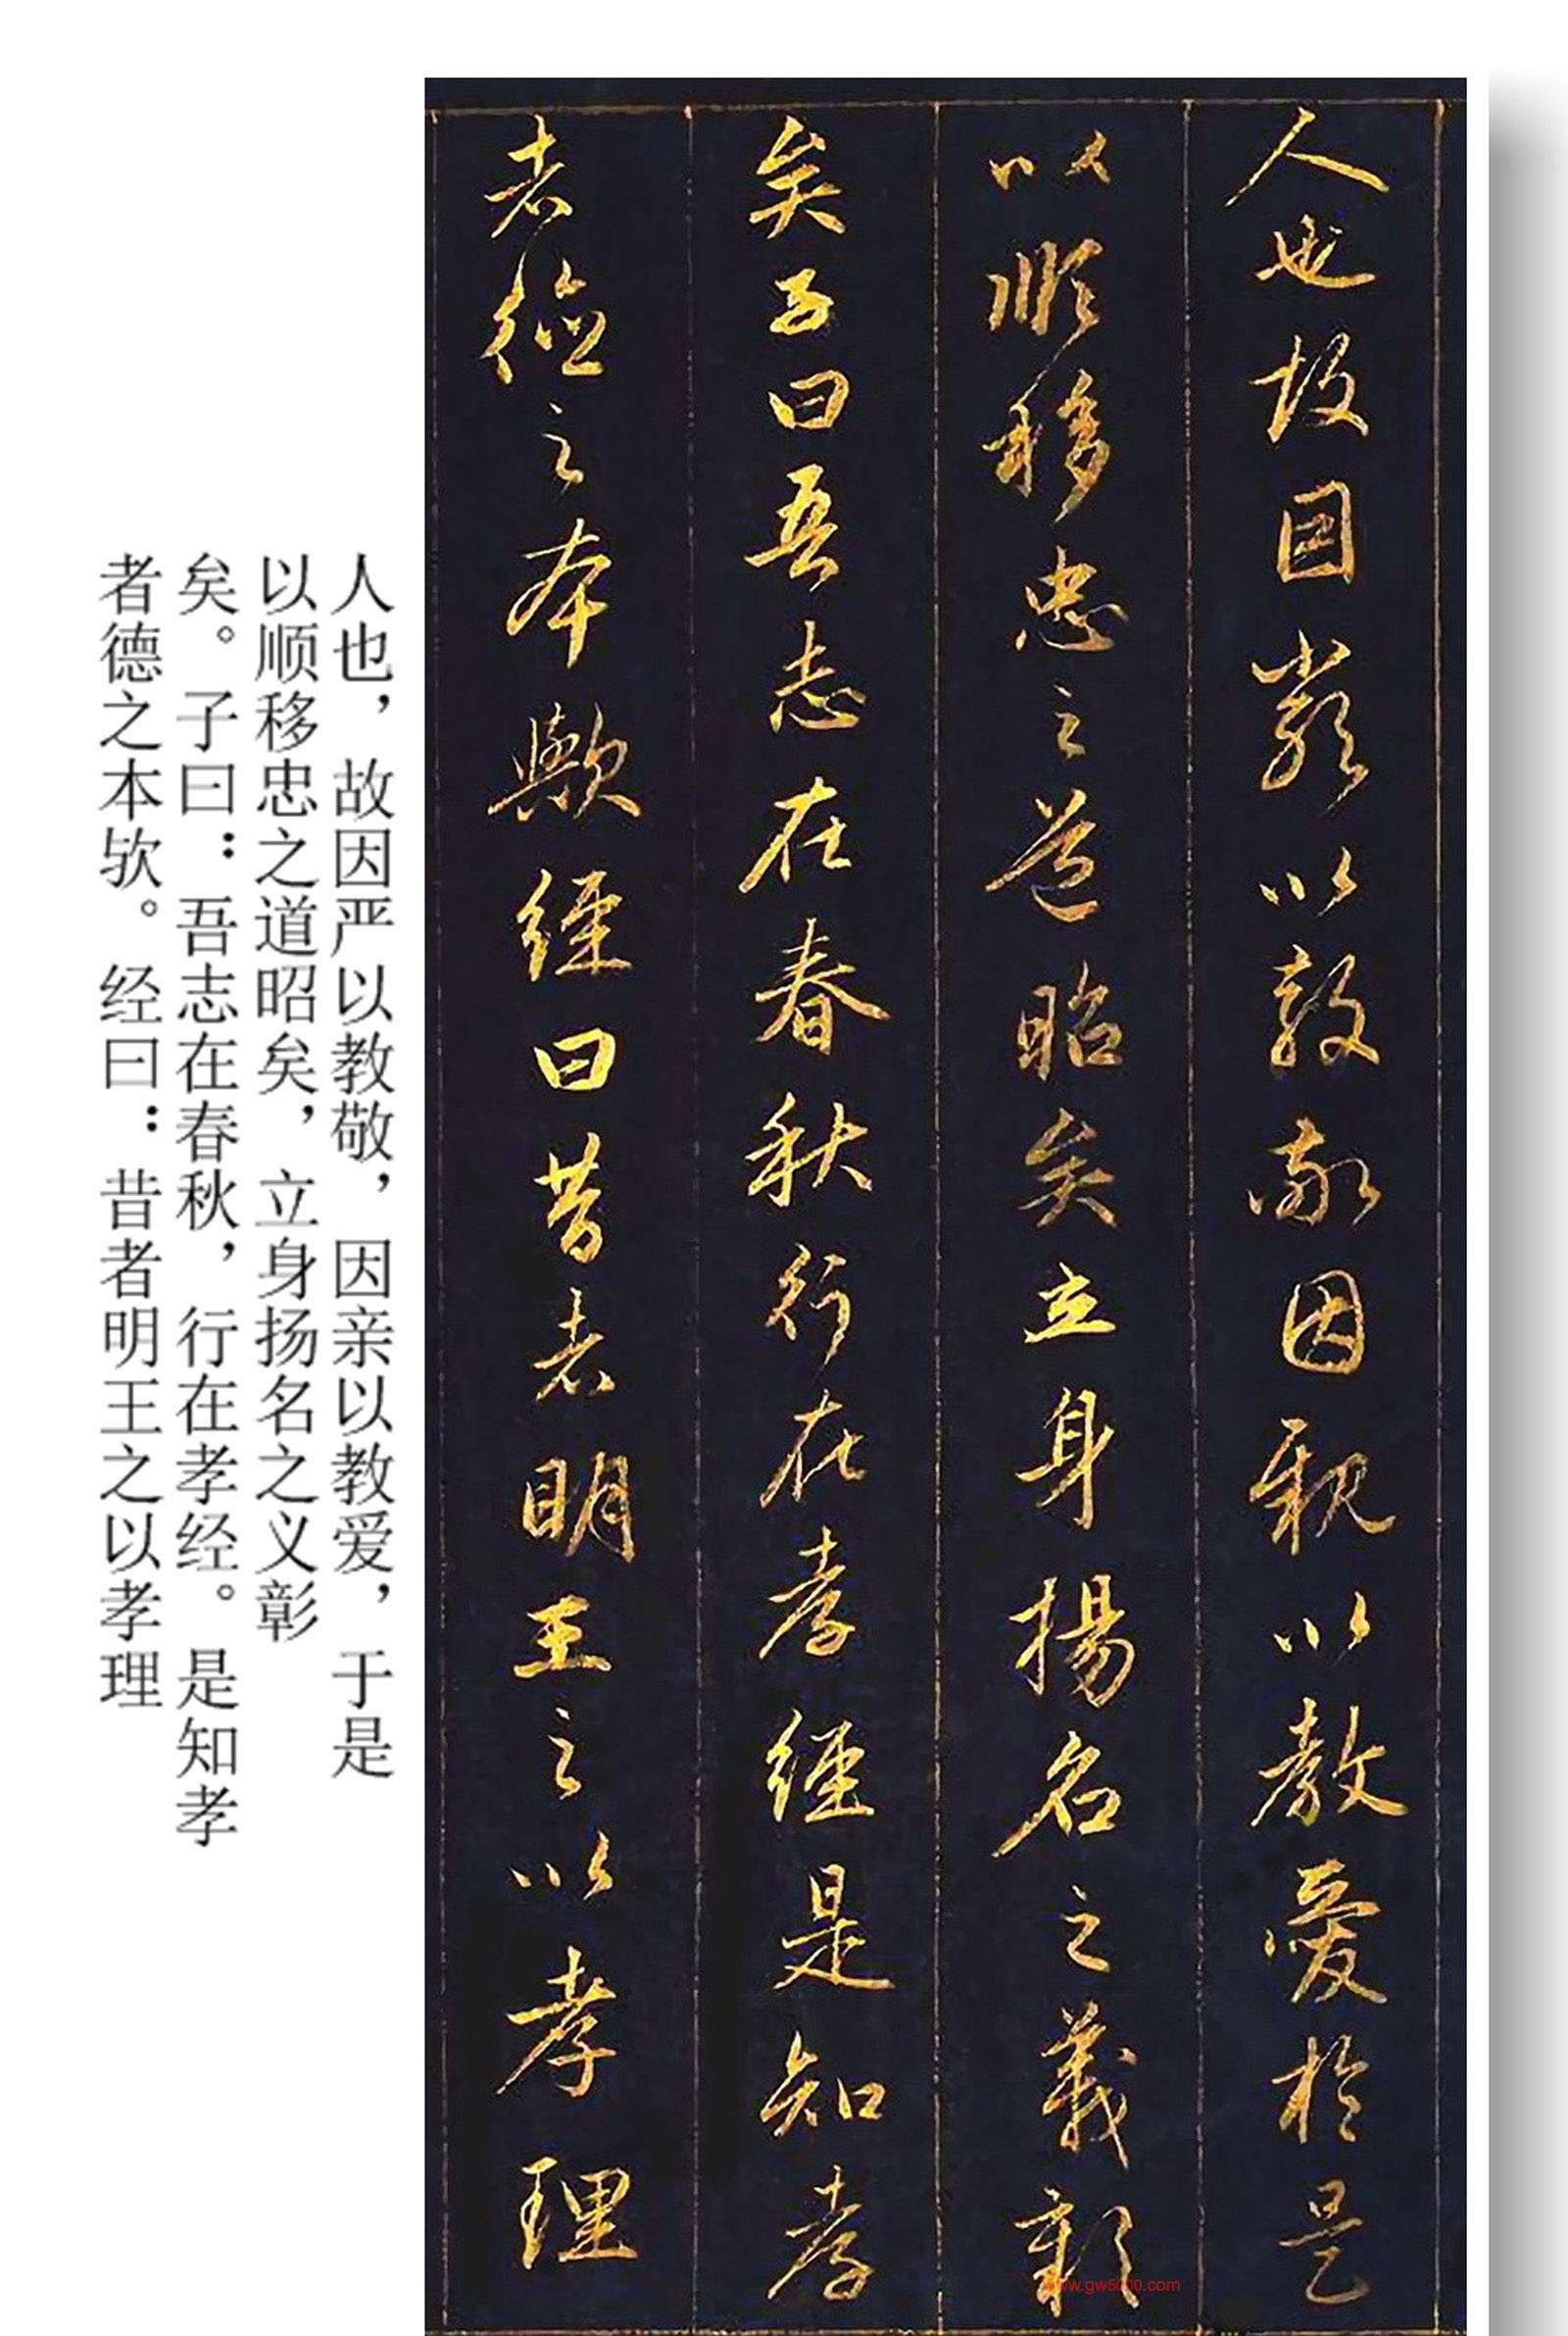 人也故因嚴以教敬因親以教愛於是
以順移忠之道昭矣立身揚名之義彰
矣子曰吾志在春秋行在孝經是知孝
者德之本歟經曰昔者明王之以孝理
人也，故因严以教敬，因亲以教爱，于是
以顺移忠之道昭矣，立身扬名之义彰
矣。子曰：吾志在春秋，行在孝经。是知孝
者德之本欤。经曰：昔者明王之以孝理
www.gw5000.com